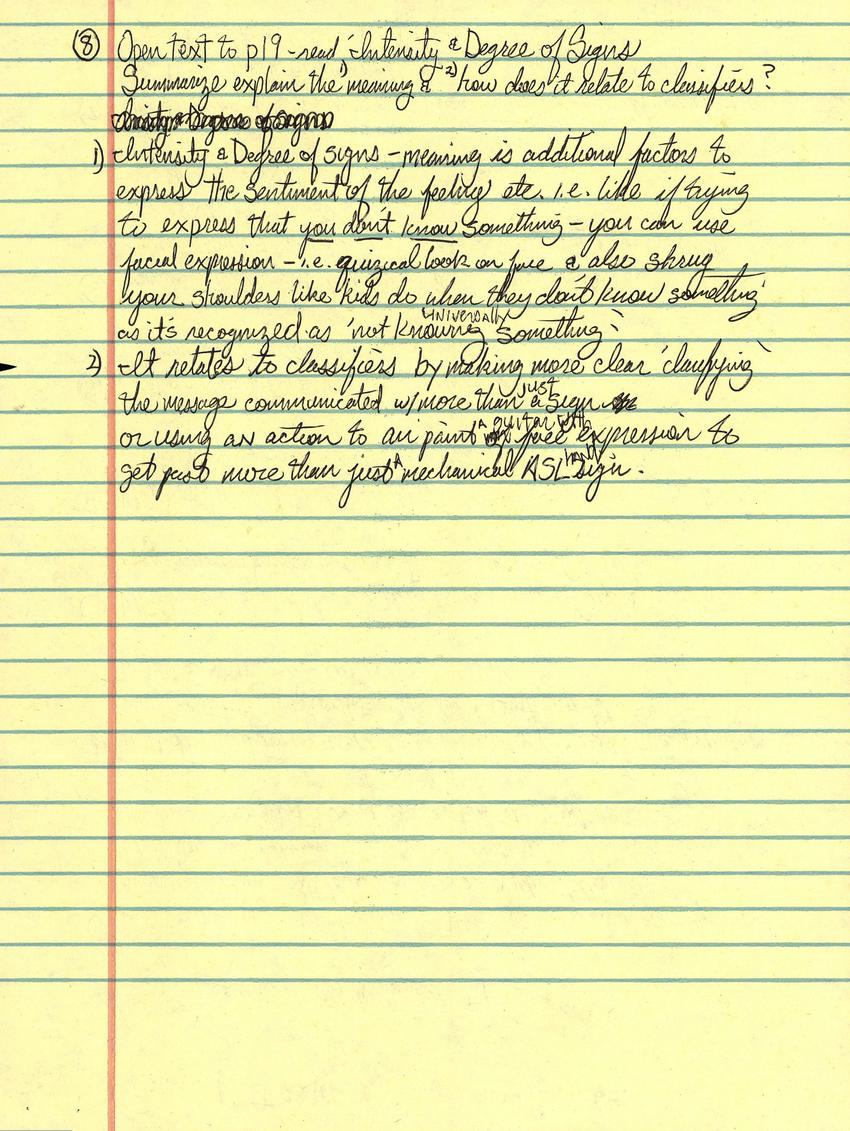 (8) Open text to p19 - read 'Intensity & Degree of Signs
Summarize explain the 1) meaning & 2) how does it relate to classifiers?
1) Intensity & Degree of signs - meaning is additional factors to
express the sentiment of the feeling etc. i.e. like if trying
to express that you don't know something - you can use
facial expression - i.e. quizical look on face & also shrug
your shoulders like kids do when they don't know something'
as it's UNIVERSALLY recognized as 'not knowing something'
2) It relates to classifiers by making more clear 'clarifying'
the message communicated w/ more than just a sign
or using an action to air paint A guitar with face expression to
get past more than just A mechanical ASL HAND sign.